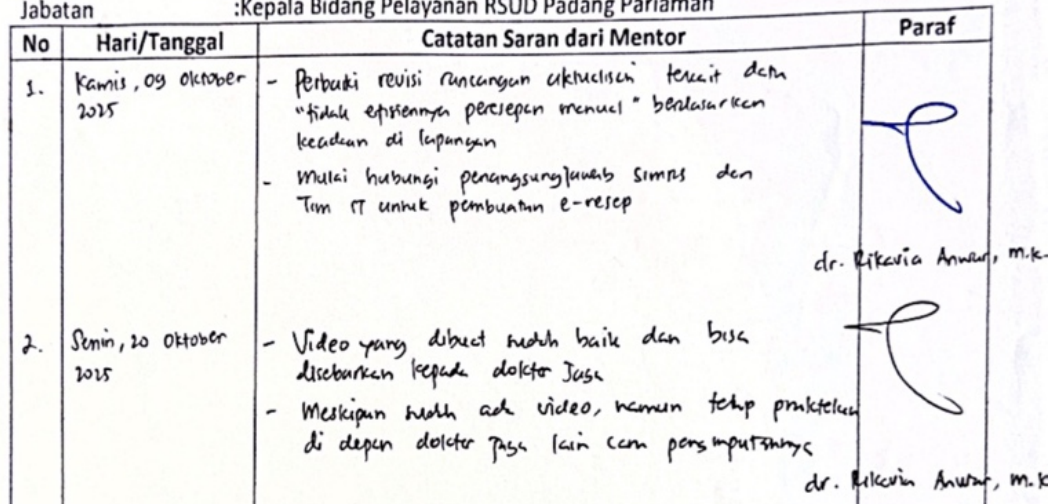 Jabatan :Kepala Bidang Pelayanan RSUD Padang Pariaman
No Hari/Tanggal Catatan Saran dari Mentor Paraf
1. Kamis, 09 Oktober - Perbaiki revisi rancangan aktualisasi terkait data
2025 "tidak efisiennya peresepan manual" berdasarkan
keadaan di lapangan
- Mulai hubungi penanggungjawab SIMRS dan
Tim IT untuk pembuatan e-resep
dr. Rikavia Anwar, m.k.
2. Senin, 20 Oktober - Video yang dibuat sudah baik dan bisa
2025 disebarkan kepada dokter Jaga
- Meskipun sudah ada video, namun tetap praktekan
di depan dokter jaga lain cara penginputannya
dr. Rikavia Anwar, m.k